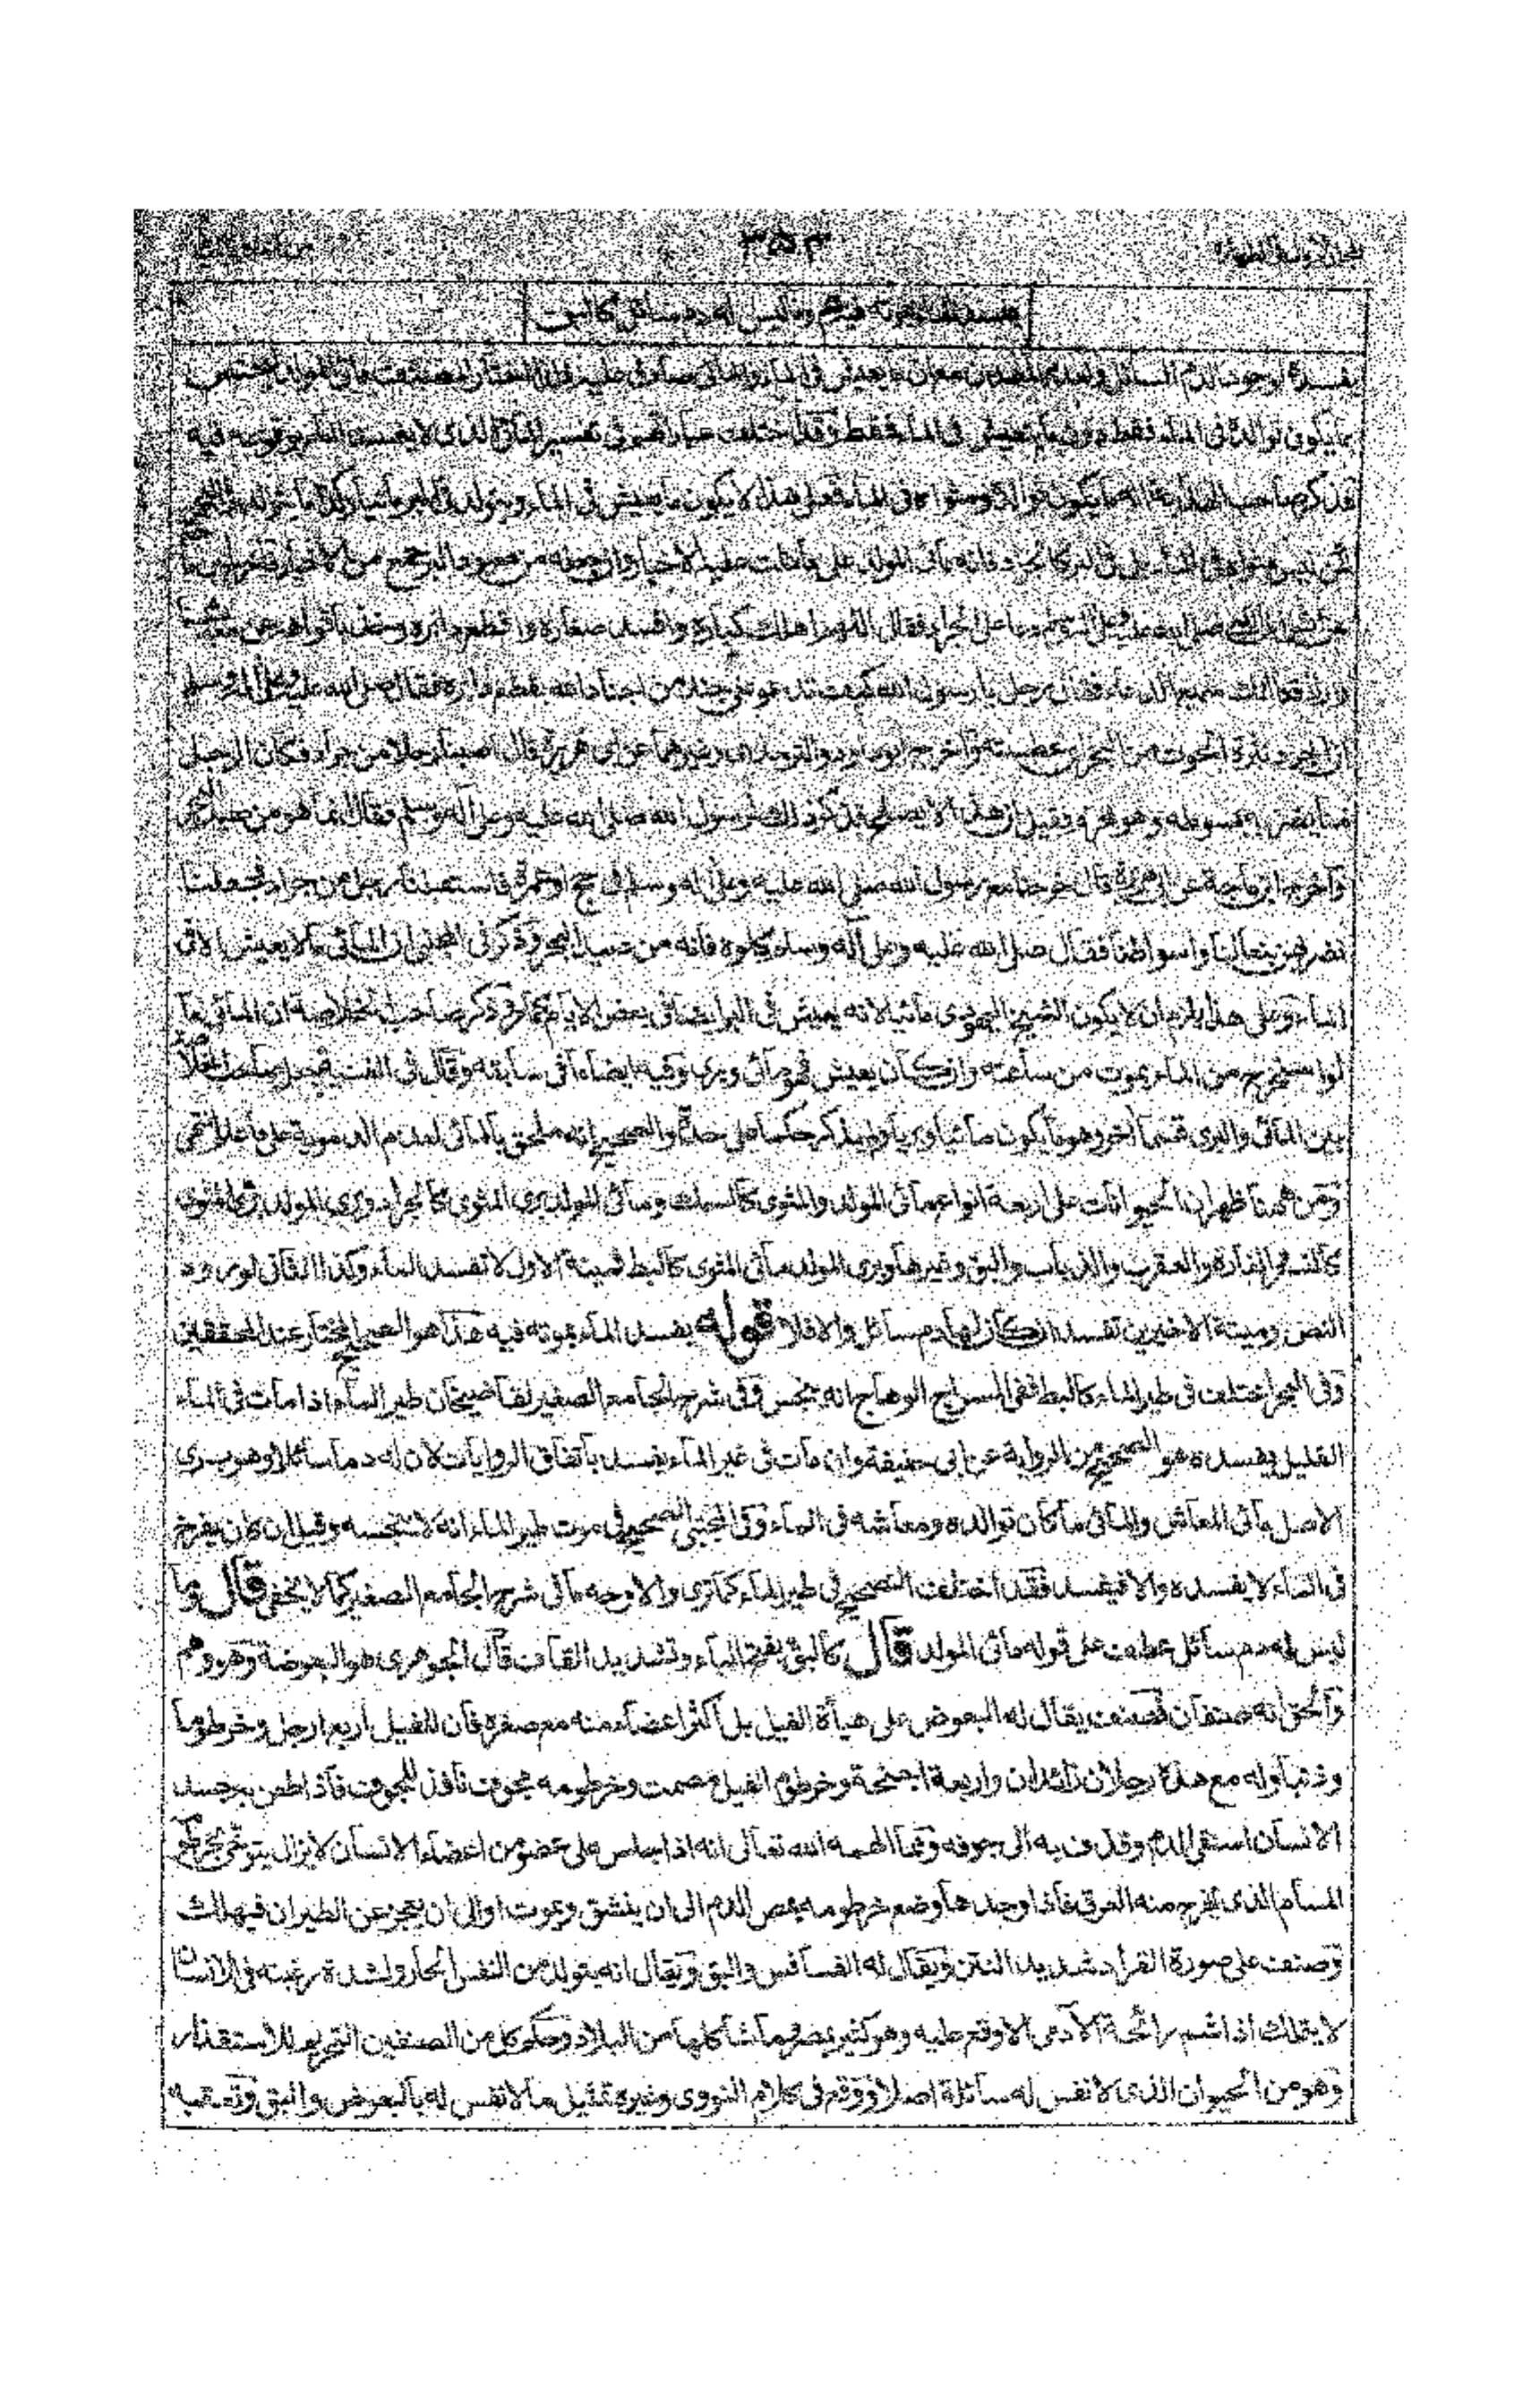 ٣٥٣
الماء بموته فيه وما ليس له دم سائل كالبق
يفسده لوجود الدم السائل
بما يكون توالده في الماء فقط دون ما يعيش في الماء فقط وقد اختلفت عباراتهم في تفسير المائي الذي لا يفسد الماء بموته فيه
فذكر صاحب انه ما يكون توالده ومثواه في الماء فعلى هذا لا يكون ما يعيش في الماء ويتولد في البر مائيا وكذا ما يتولد في الماء
لكن ليس مثواه في الماء بل في البر كالجراد فانه مائي المولد على ما دلت عليه الاخبار
صلى الله عليه وسلم دعا على الجراد فقال اللهم اهلك كباره وافسد صغاره واقطع دابره وخذ بافواهه عن معايشنا
وارزقنا انك سميع الدعاء فقال رجل يا رسول الله كيف تدعو على جند من اجناد الله بقطع دابره فقال صلى الله عليه وعلى آله وسلم
ان الجراد نثرة الحوت من البحر اي عطسته واخرج ابو داود والترمذي وغيرهما عن ابي هريرة قال اصبنا رجلا من جراد فكان الرجل
منا يضربه بسوطه وهو محرم فقيل ان هذا لا يصلح فذكر ذلك لرسول الله صلى الله عليه وعلى آله وسلم فقال انما هو من صيد البحر
واخرج ابن ماجة عن ابي هريرة قال خرجنا مع رسول الله صلى الله عليه وعلى آله وسلم في حج او عمرة فاستقبلنا رجل من جراد فجعلنا
نضربهن بنعالنا واسواطنا فقال صلى الله عليه وعلى آله وسلم كلوه فانه من صيد البحر وذكر في المجتبى ان المائي ما لا يعيش الا في
الماء وعلى هذا يلزم ان لا يكون الشيخ اليهودي مائيا لانه يعيش في البر ايضا في بعض الايام كما مر وذكر صاحب الخلاصة ان المائي ما
لو استخرج من الماء يموت من ساعته وان كان يعيش فهو مائي وبري وفيه ايضا ما في سابقه وقال في الغنية
بين المائي والبري قسما آخر وهو ما يكون مائيا وبريا ولم يذكر حكما على حدة والصحيح انه ملحق بالمائي لعدم الدموية على ما لا يخفى
ومن ههنا ظهر ان الحيوانات على اربعة انواع مائي المولد والمثوى كالسمك ومائي المولد بري المثوى كالجراد وبري المولد بري المثوى
كالفارة والعقرب والذباب والبق وغيرها وبري المولد مائي المثوى كالبط فميتة الاول لا تفسد الماء وكذا الثاني لورود
النص وميتة الاخيرين تفسد ان كان لها دم سائل والا فلا قوله يفسد الماء بموته فيه هذا هو الصحيح المختار عند المحققين
وفي البحر اختلف في طير الماء كالبط ففي السراج الوهاج انه ينجس وفي شرح الجامع الصغير لقاضيخان طير الماء اذا مات في الماء
القليل يفسده هو الصحيح من الرواية عن ابي حنيفة وان مات في غير الماء يفسد باتفاق الروايات لان له دما سائلا وهو بري
الاصل مائي المعاش والمائي ما كان توالده ومعاشه في الماء وفي المجتبى الصحيح في موت طير الماء انه لا ينجسه وقيل ان كان يفرخ
في الماء لا يفسده والا فيفسد فقد اختلف التصحيح في طير الماء كما ترى والاوجه ما في شرح الجامع الصغير كما لا يخفى قال وما
ليس له دم سائل عطف على قوله مائي المولد قال كالبق بفتح الباء وتشديد القاف قال الجوهري هو البعوضة وهو وهم
والحق انه صنفان فصنف يقال له البعوض على هيأة الفيل بل اكثر اعضاء منه مع صغره فان للفيل اربع ارجل وخرطوما
وذنبا وله مع هذه رجلان زائدان واربعة اجنحة وخرطوم الفيل مصمت وخرطومه مجوف نافذ للجوف فاذا طعن به جسد
الانسان استقى الدم وقذف به الى جوفه ومما الهمه الله تعالى انه اذا جلس على عضو من اعضاء الانسان لا يزال يتوخى بخرطومه
المسام الذي يخرج منه العرق فاذا وجدها وضع خرطومه يمص الدم الى ان ينشق ويموت او الى ان يعجز عن الطيران فيهلك
وصنف على صورة القراد شديد النتن ويقال له الفسافس والبق ويقال انه يتولد من النفس الحار ولشدة رغبته في الانسان
لا يتمالك اذا شم رائحة الآدمي الا وقع عليه وهو كثير بمصر وما شاكلها من البلاد وحكم كل من الصنفين التحريم للاستقذار
وهو من الحيوان الذي لا نفس له سائلة اصلا ووقع في كلام النووي وغيره تمثيل ما لا نفس له بالبعوض والبق وتعقبه